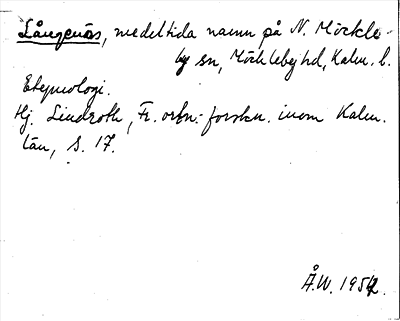 Långenäs, medeltida namn på N. Möckle-
by sn, Möcklebyhd, Kalm. l.
Etymologi.
Hj. Lindroth, Fr. ortn.-forskn. inom Kalm.
län, S. 17.
Å.W. 1954.